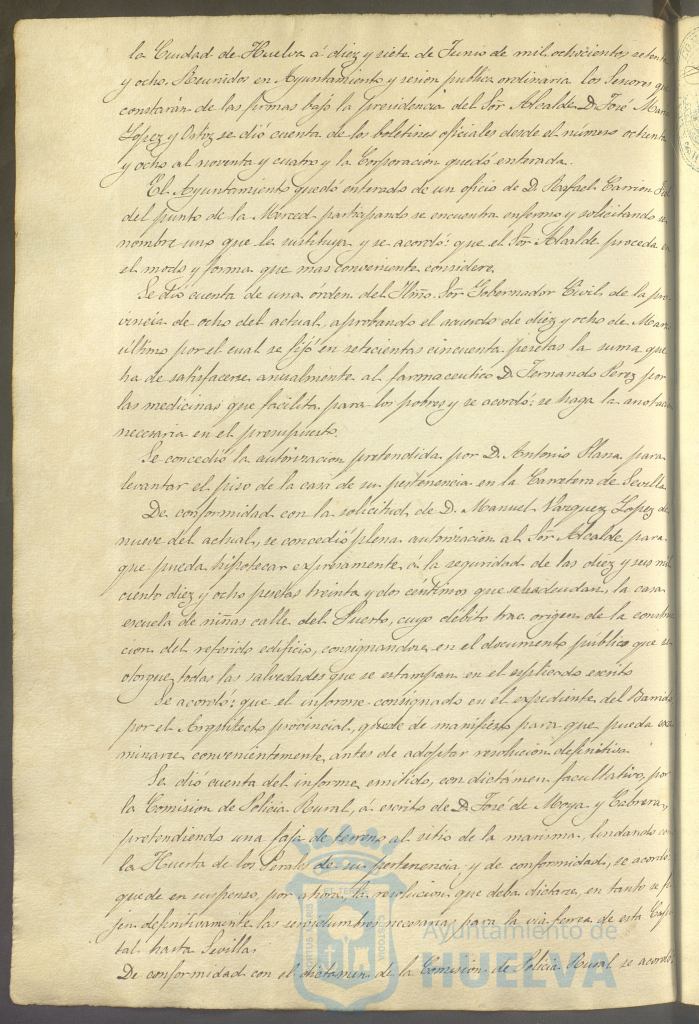 la Ciudad de Huelva á diez y siete de Junio de mil ochocientos setenta
y ocho. Reunidos en Ayuntamiento y sesion publica ordinaria los Señores que
constarán de las firmas bajo la presidencia del Sor Alcalde D. José Maria
Lopez y Ortiz se dió cuenta de los boletines oficiales desde el número ochenta
y ocho al noventa y cuatro y la Corporacion quedó enterada.
El Ayuntamiento quedó enterado de un oficio de D. Rafael Carrion
del punto de la Merced participando se encuentra enfermo y solicitando se
nombre uno que le sustituya y se acordó: que el Sor Alcalde proceda en
el modo y forma que mas conveniente considere.
Se dió cuenta de una órden del Iltmo. Sor Gobernador Civil de la pro
vincia de ocho del actual, aprobando el acuerdo de diez y ocho de
último por el cual se fijó en setecientas cincuenta pesetas la suma que
ha de satisfacerse anualmente al farmaceutico D. Fernando Perez por
las medicinas que facilita para los pobres y se acordó: se haga la anotacion
necesaria en el presupuesto.
Se concedió la autorizacion pretendida por D. Antonio Plana para
levantar el piso de la casa de su pertenencia en la Carretera de Sevilla.
De conformidad con la solicitud de D. Manuel Vazquez Lopez de
nueve del actual, se concedió plena autorizacion al Sor Alcalde para
que pueda hipotecar expresamente á la seguridad de las diez y seis mil
ciento diez y ocho pesetas treinta y dos céntimos que se le adeudan, la casa
escuela de niñas calle del Puerto, cuyo débito trae origen de la construc
cion del referido edificio, consignandose en el documento público que se
otorgue, todas las salvedades que se estampan en el esplicado escrito
Se acordó: que el informe consignado en el expediente del
por el Arquitecto provincial, quede de manifiesto para que pueda exa
minarse convenientemente, antes de adoptar resolucion definitiva.
Se dió cuenta del informe emitido, con dictámen facultativo, por
la Comision de Policia Rural, á escrito de D. José de Moya y Cabrera,
pretendiendo una faja de terreno al sitio de la marisma, lindando con
la Huerta de los Perales de su pertenencia y de conformidad, se acordó:
quede en suspenso, por ahora, la resolucion que deba dictarse, en tanto se fi
jen definitivamente las servidumbres necesarias para la via ferrea de esta Capi
tal hasta Sevilla.
De conformidad con el dictamen de la Comision de Policia Rural se acordó:
Ayuntamiento de
HUELVA